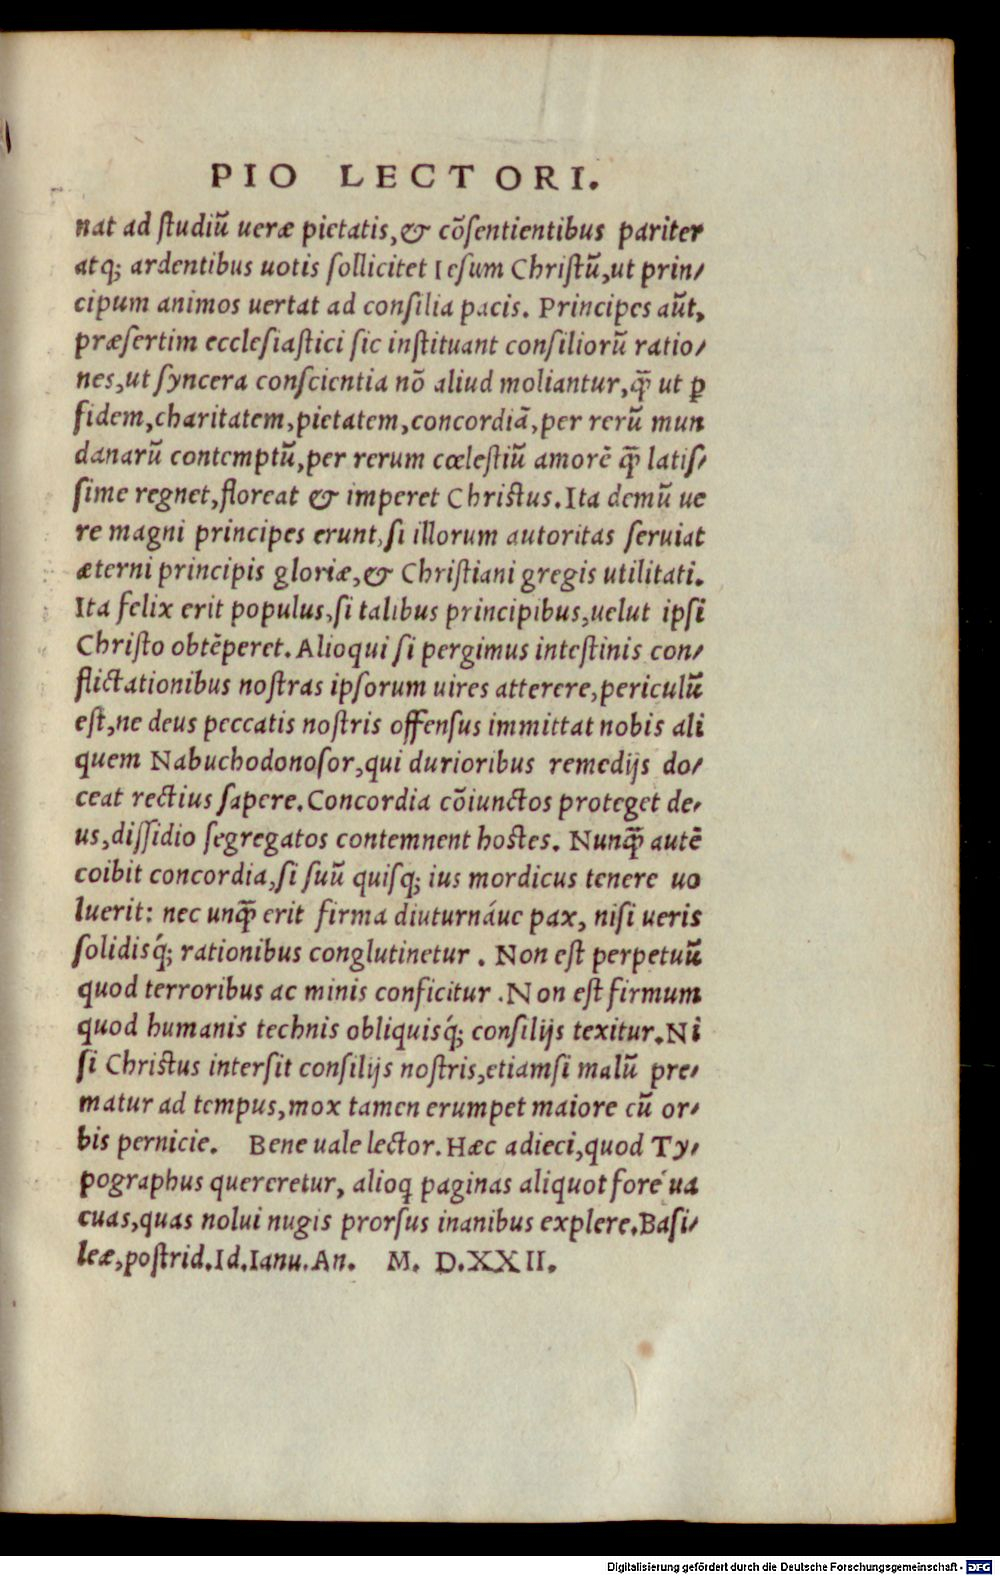 PIO LECTORI.
nat ad ſtudiũ ueræ pietatis,& cõſentientibus pariter
atq; ardentibus uotis ſollicitet Ieſum Chriſtũ,ut prin/
cipum animos uertat ad conſilia pacis. Principes aũt,
præſertim eccleſiaſtici ſic inſtituant conſiliorũ ratio/
nes,ut ſyncera conſcientia nõ aliud moliantur,q̃ ut ꝑ
fidem,charitatem,pietatem,concordiã,per rerũ mun
danarũ contemptũ,per rerum cœleſtiũ amorẽ q̃ latiſ/
ſime regnet,floreat & imperet Chriſtus.Ita demũ ue
re magni principes erunt,ſi illorum autoritas ſeruiat
æterni principis gloriæ,& Chriſtiani gregis utilitati.
Ita felix erit populus,ſi talibus principibus,uelut ipſi
Chriſto obtẽperet. Alioqui ſi pergimus inteſtinis con/
flictationibus noſtras ipſorum uires atterere,periculũ
eſt,ne deus peccatis noſtris offenſus immittat nobis ali
quem Nabuchodonoſor,qui durioribus remedijs do/
ceat rectius ſapere.Concordia cõiunctos proteget de/
us,diſſidio ſegregatos contemnent hoſtes. Nunq̃ autẽ
coibit concordia,ſi ſuũ quiſq; ius mordicus tenere uo
luerit: nec unq̃ erit firma diuturnáue pax, niſi ueris
ſolidisq́; rationibus conglutinetur . Non eſt perpetuũ
quod terroribus ac minis conficitur .Non eſt firmum
quod humanis technis obliquisq́; conſilijs texitur.Ni
ſi Chriſtus interſit conſilijs noſtris,etiamſi malũ pre/
matur ad tempus,mox tamen erumpet maiore cũ or/
bis pernicie. Bene uale lector. Hæc adieci,quod Ty/
pographus quereretur, alioq̃ paginas aliquot fore ua
cuas,quas nolui nugis prorſus inanibus explere.Baſi/
leæ,poſtrid.Id.Ianu.An. M. D.XXII.
Digitalisierung gefördert durch die Deutsche Forschungsgemeinschaft - DFG